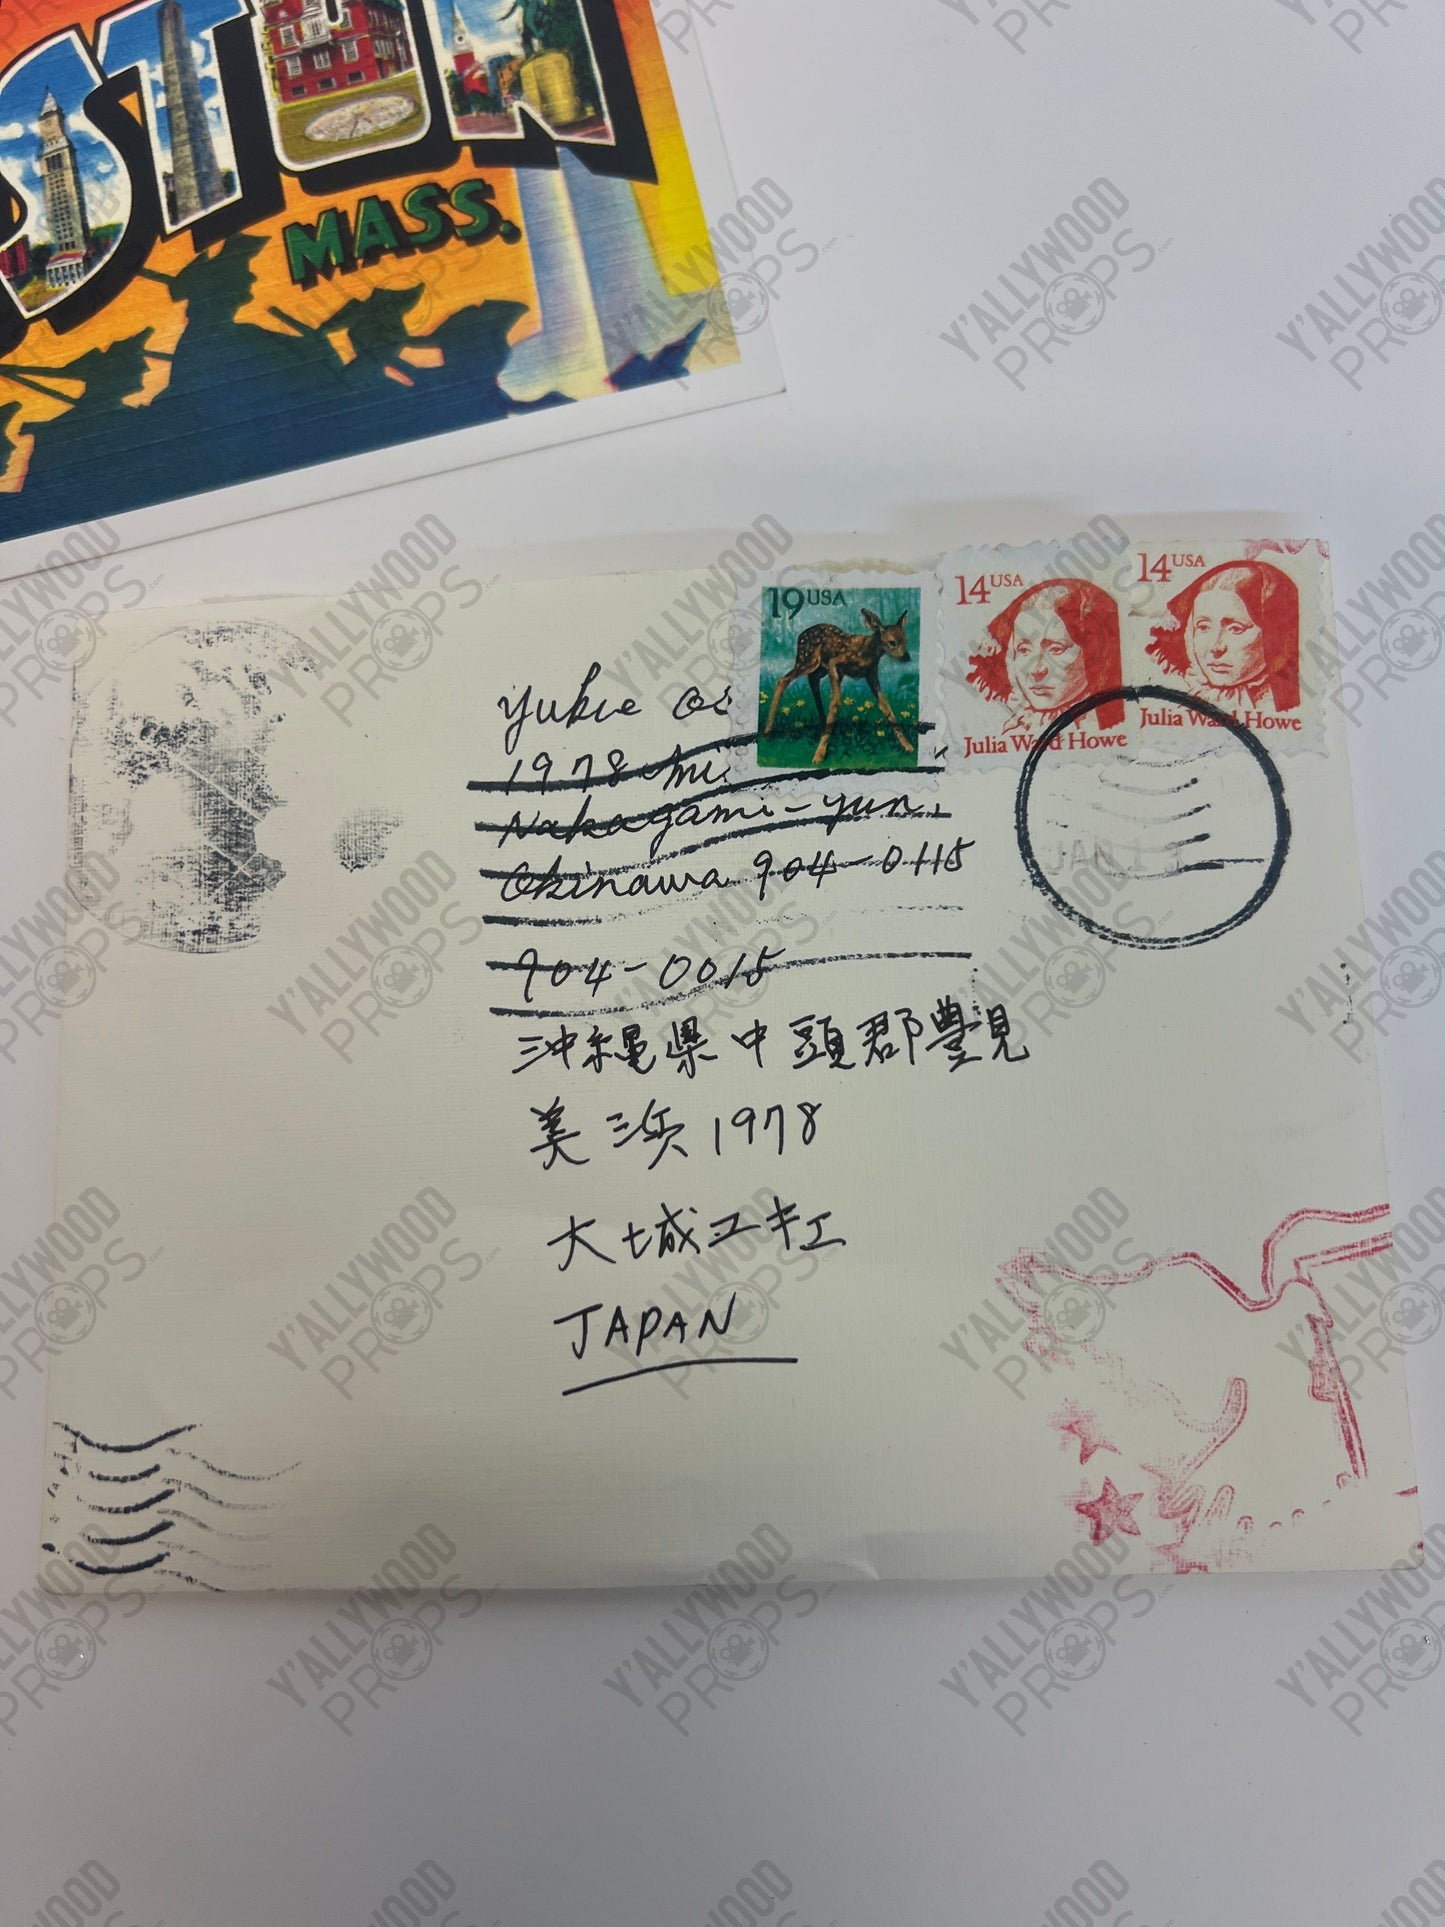 MASS.
19 USA
14 USA
Julia Ward Howe
14 USA
Julia Ward Howe
Yukie
1978 Mi
Nakagami-gun,
Okinawa 904-0115
904-0015
沖縄県中頭郡豊見
美浜1978
大城ユキエ
JAPAN
Y'ALLYWOOD
PROPS.com